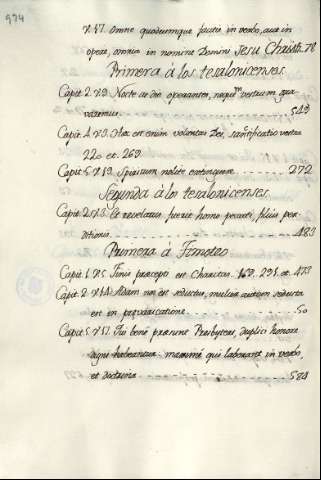 974
v. 17. Omne quodcumque facitis in verbo, aut in
opere, omnia in nomine Domini Jesu Christi. 78
Primera á los tesalonicenses
Capit. 2. v. 9. Nocte ac die operantes, nequem vestrum gra
varemus 543
Capit. 4. v. 3. Hæc est enim voluntas Dei, sanctificatio vestra
220 et. 269.
Capit. 5. v. 19. Spiritum nolite extinguere 272
Segunda á los tesalonicenses
Capit. 2. v. 3. Et revelatus fuerit homo peccati, filius per
ditionis 483
Primera á Timoteo
Capit. 1. v. 5. Finis præcepti est Charitas. 169, 291. et. 473
Capit. 2. v. 14. Adam non est seductus, mulier autem seducta
est in prævaricatione 50
Capit. 5. v. 17. Qui bene præsunt Presbyteri, duplici honore
digni habeantur maxime qui laborant in verbo,
et doctrina 584